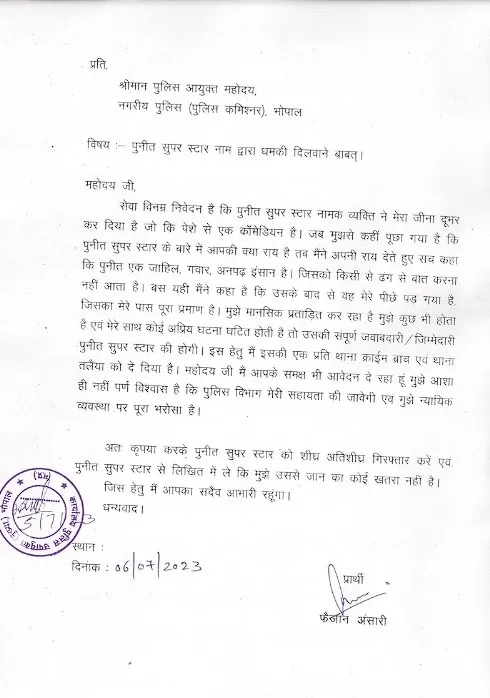 प्रति,
श्रीमान पुलिस आयुक्त महोदय,
नगरीय पुलिस (पुलिस कमिश्नर), भोपाल
विषय :– पुनीत सुपर स्टार नाम द्वारा धमकी दिलवाने बाबत्।
महोदय जी,
सेवा विनम्र निवेदन है कि पुनीत सुपर स्टार नामक व्यक्ति ने मेरा जीना दूभर
कर दिया है जो कि पेशे से एक कॉमेडियन है। जब मुझसे कहीं पूछा गया है कि
पुनीत सुपर स्टार के बारे में आपकी क्या राय है तब मैंने अपनी राय देते हुए सच कहा
कि पुनीत एक जाहिल, गवार, अनपढ़ इंसान है। जिसको किसी से ढंग से बात करना
नहीं आता है। बस यही मैंने कहा है कि उसके बाद से वह मेरे पीछे पड़ गया है,
जिसका मेरे पास पूरा प्रमाण है। मुझे मानसिक प्रताड़ित कर रहा है मुझे कुछ भी होता
है एवं मेरे साथ कोई अप्रिय घटना घटित होती है तो उसकी संपूर्ण जवाबदारी/जिम्मेदारी
पुनीत सुपर स्टार की होगी। इस हेतु मैं इसकी एक प्रति थाना क्राईम ब्रांच एवं थाना
तलैया को दे दिया है। महोदय जी मैं आपके समक्ष भी आवेदन दे रहा हूं मुझे आशा
ही नहीं पर्ण विश्वास है कि पुलिस विभाग मेरी सहायता की जावेगी एवं मुझे न्यायिक
व्यवस्था पर पूरा भरोसा है।
अतः कृपया करके पुनीत सुपर स्टार को शीघ्र अतिशीघ्र गिरफ्तार करें एवं
पुनीत सुपर स्टार से लिखित में ले कि मुझे उससे जान का कोई खतरा नहीं है।
जिस हेतु मैं आपका सदैव आभारी रहूंगा।
धन्यवाद।
स्थान :
दिनांक : 06/07/2023
प्रार्थी
फैजान अंसारी
कार्यालय पुलिस उपायुक्त (मुख्या.) भोपाल
(म.प्र.)
5/7/23